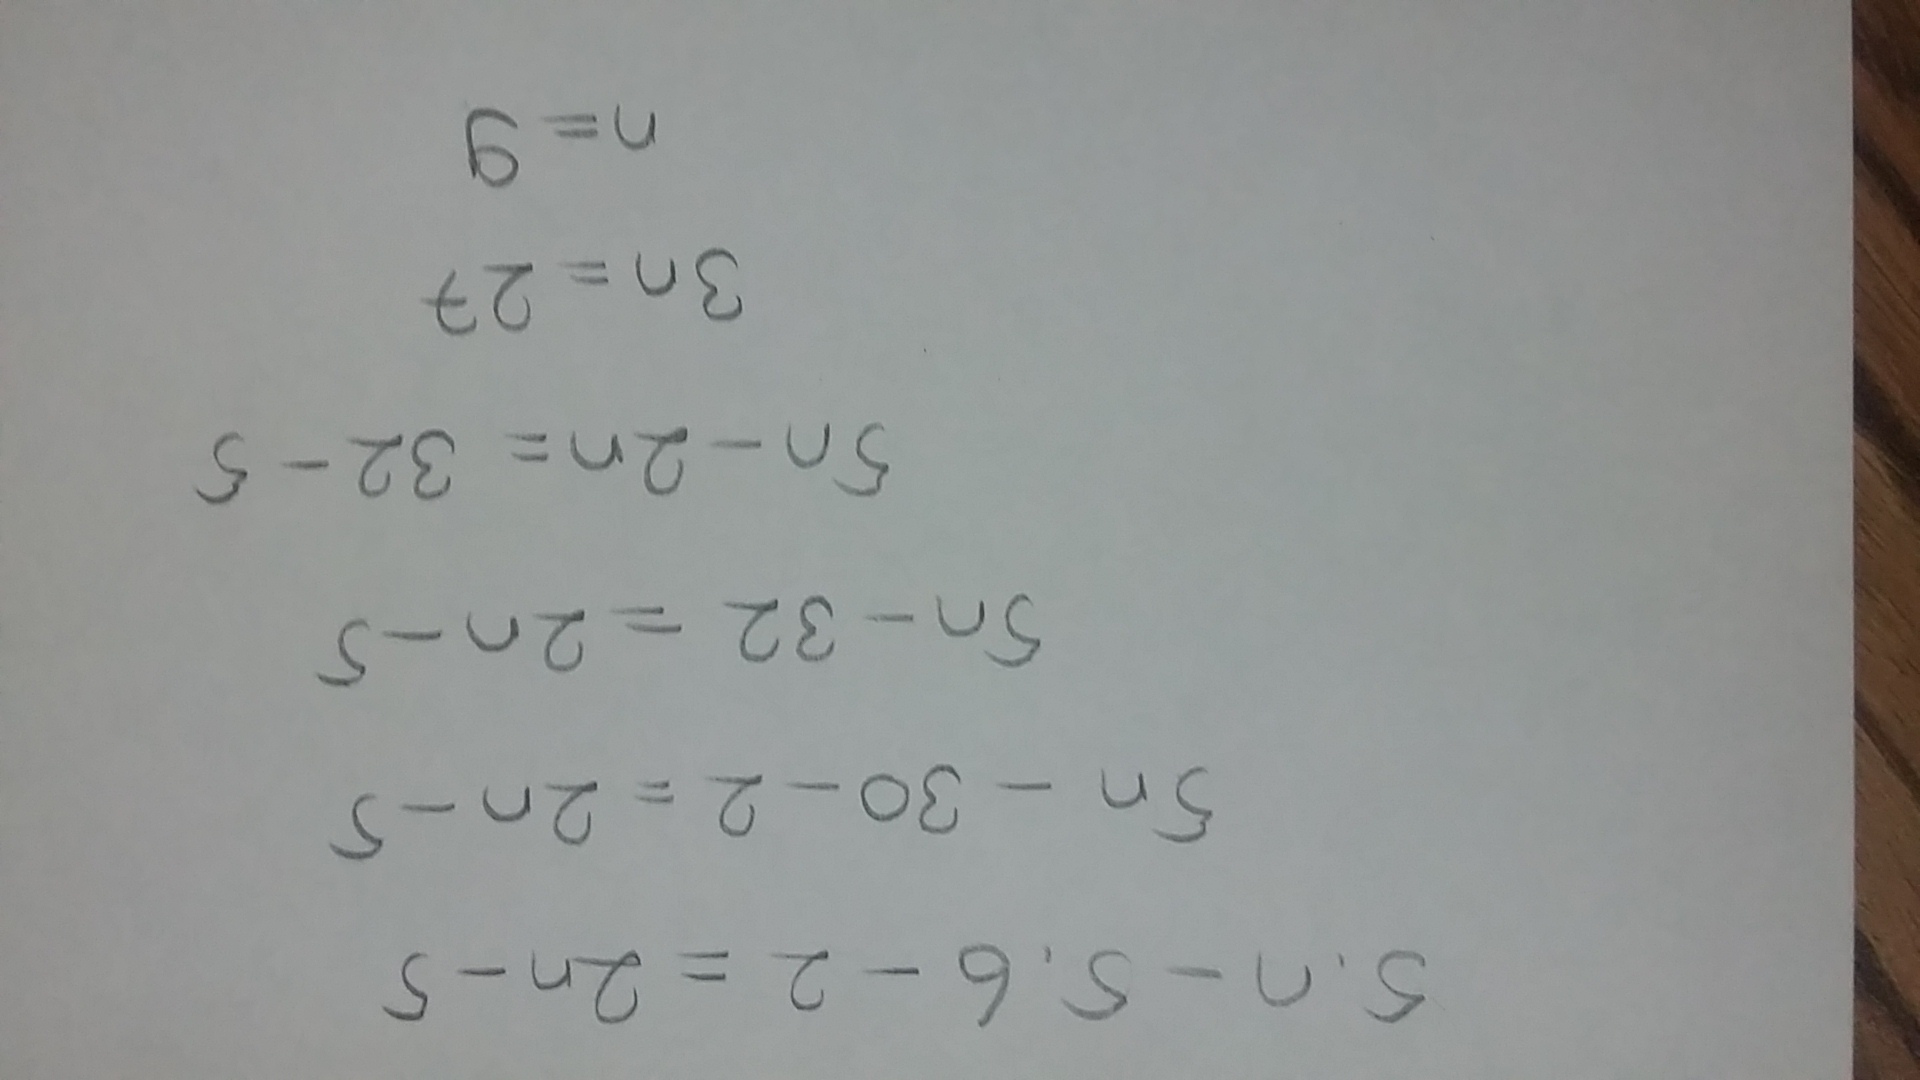 5.n - 5.6 - 2 = 2n - 5
5n - 30 - 2 = 2n - 5
5n - 32 = 2n - 5
5n - 2n = 32 - 5
3n = 27
n = 9